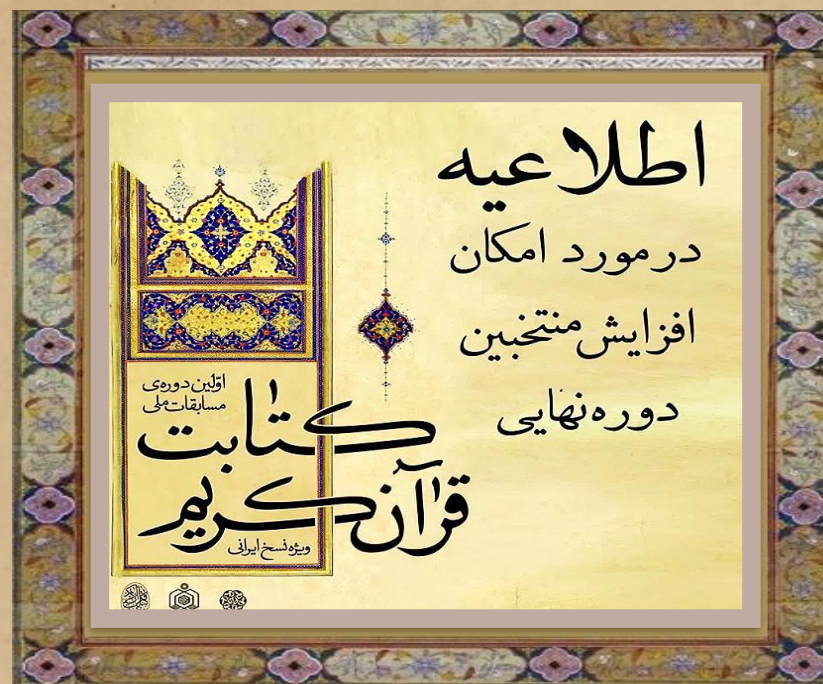 اطلاعیه
در مورد امکان
افزایش منتخبین
دوره نهایی
اوّلین دوره‌ی
مسابقات ملی
کتابت
قرآن کریم
ویژه نسخ ایرانی